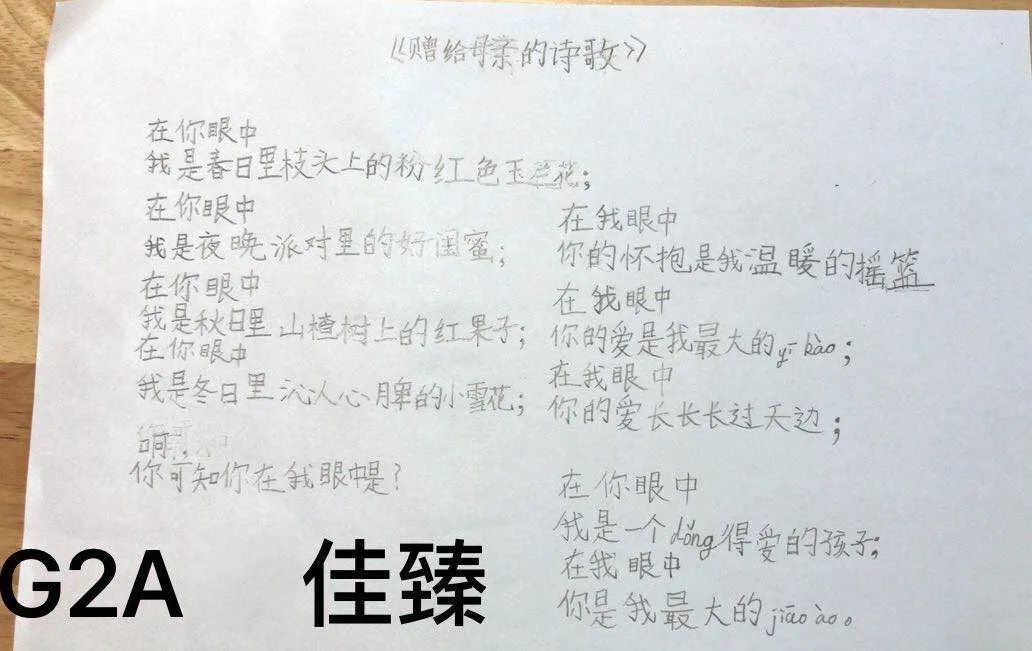 《赠给母亲的诗歌》
在你眼中
我是春日里枝头上的粉红色玉兰花；
在你眼中
我是夜晚派对里的好闺蜜；
在你眼中
我是秋日里山楂树上的红果子；
在你眼中
我是冬日里沁人心脾的小雪花；
啊，
你可知你在我眼中是？
在我眼中
你的怀抱是我温暖的摇篮
在我眼中
你的爱是我最大的yī kào；
在我眼中
你的爱长长长过天边；
在你眼中
我是一个dǒng得爱的孩子；
在我眼中
你是我最大的jiāo ào。
G2A 佳臻